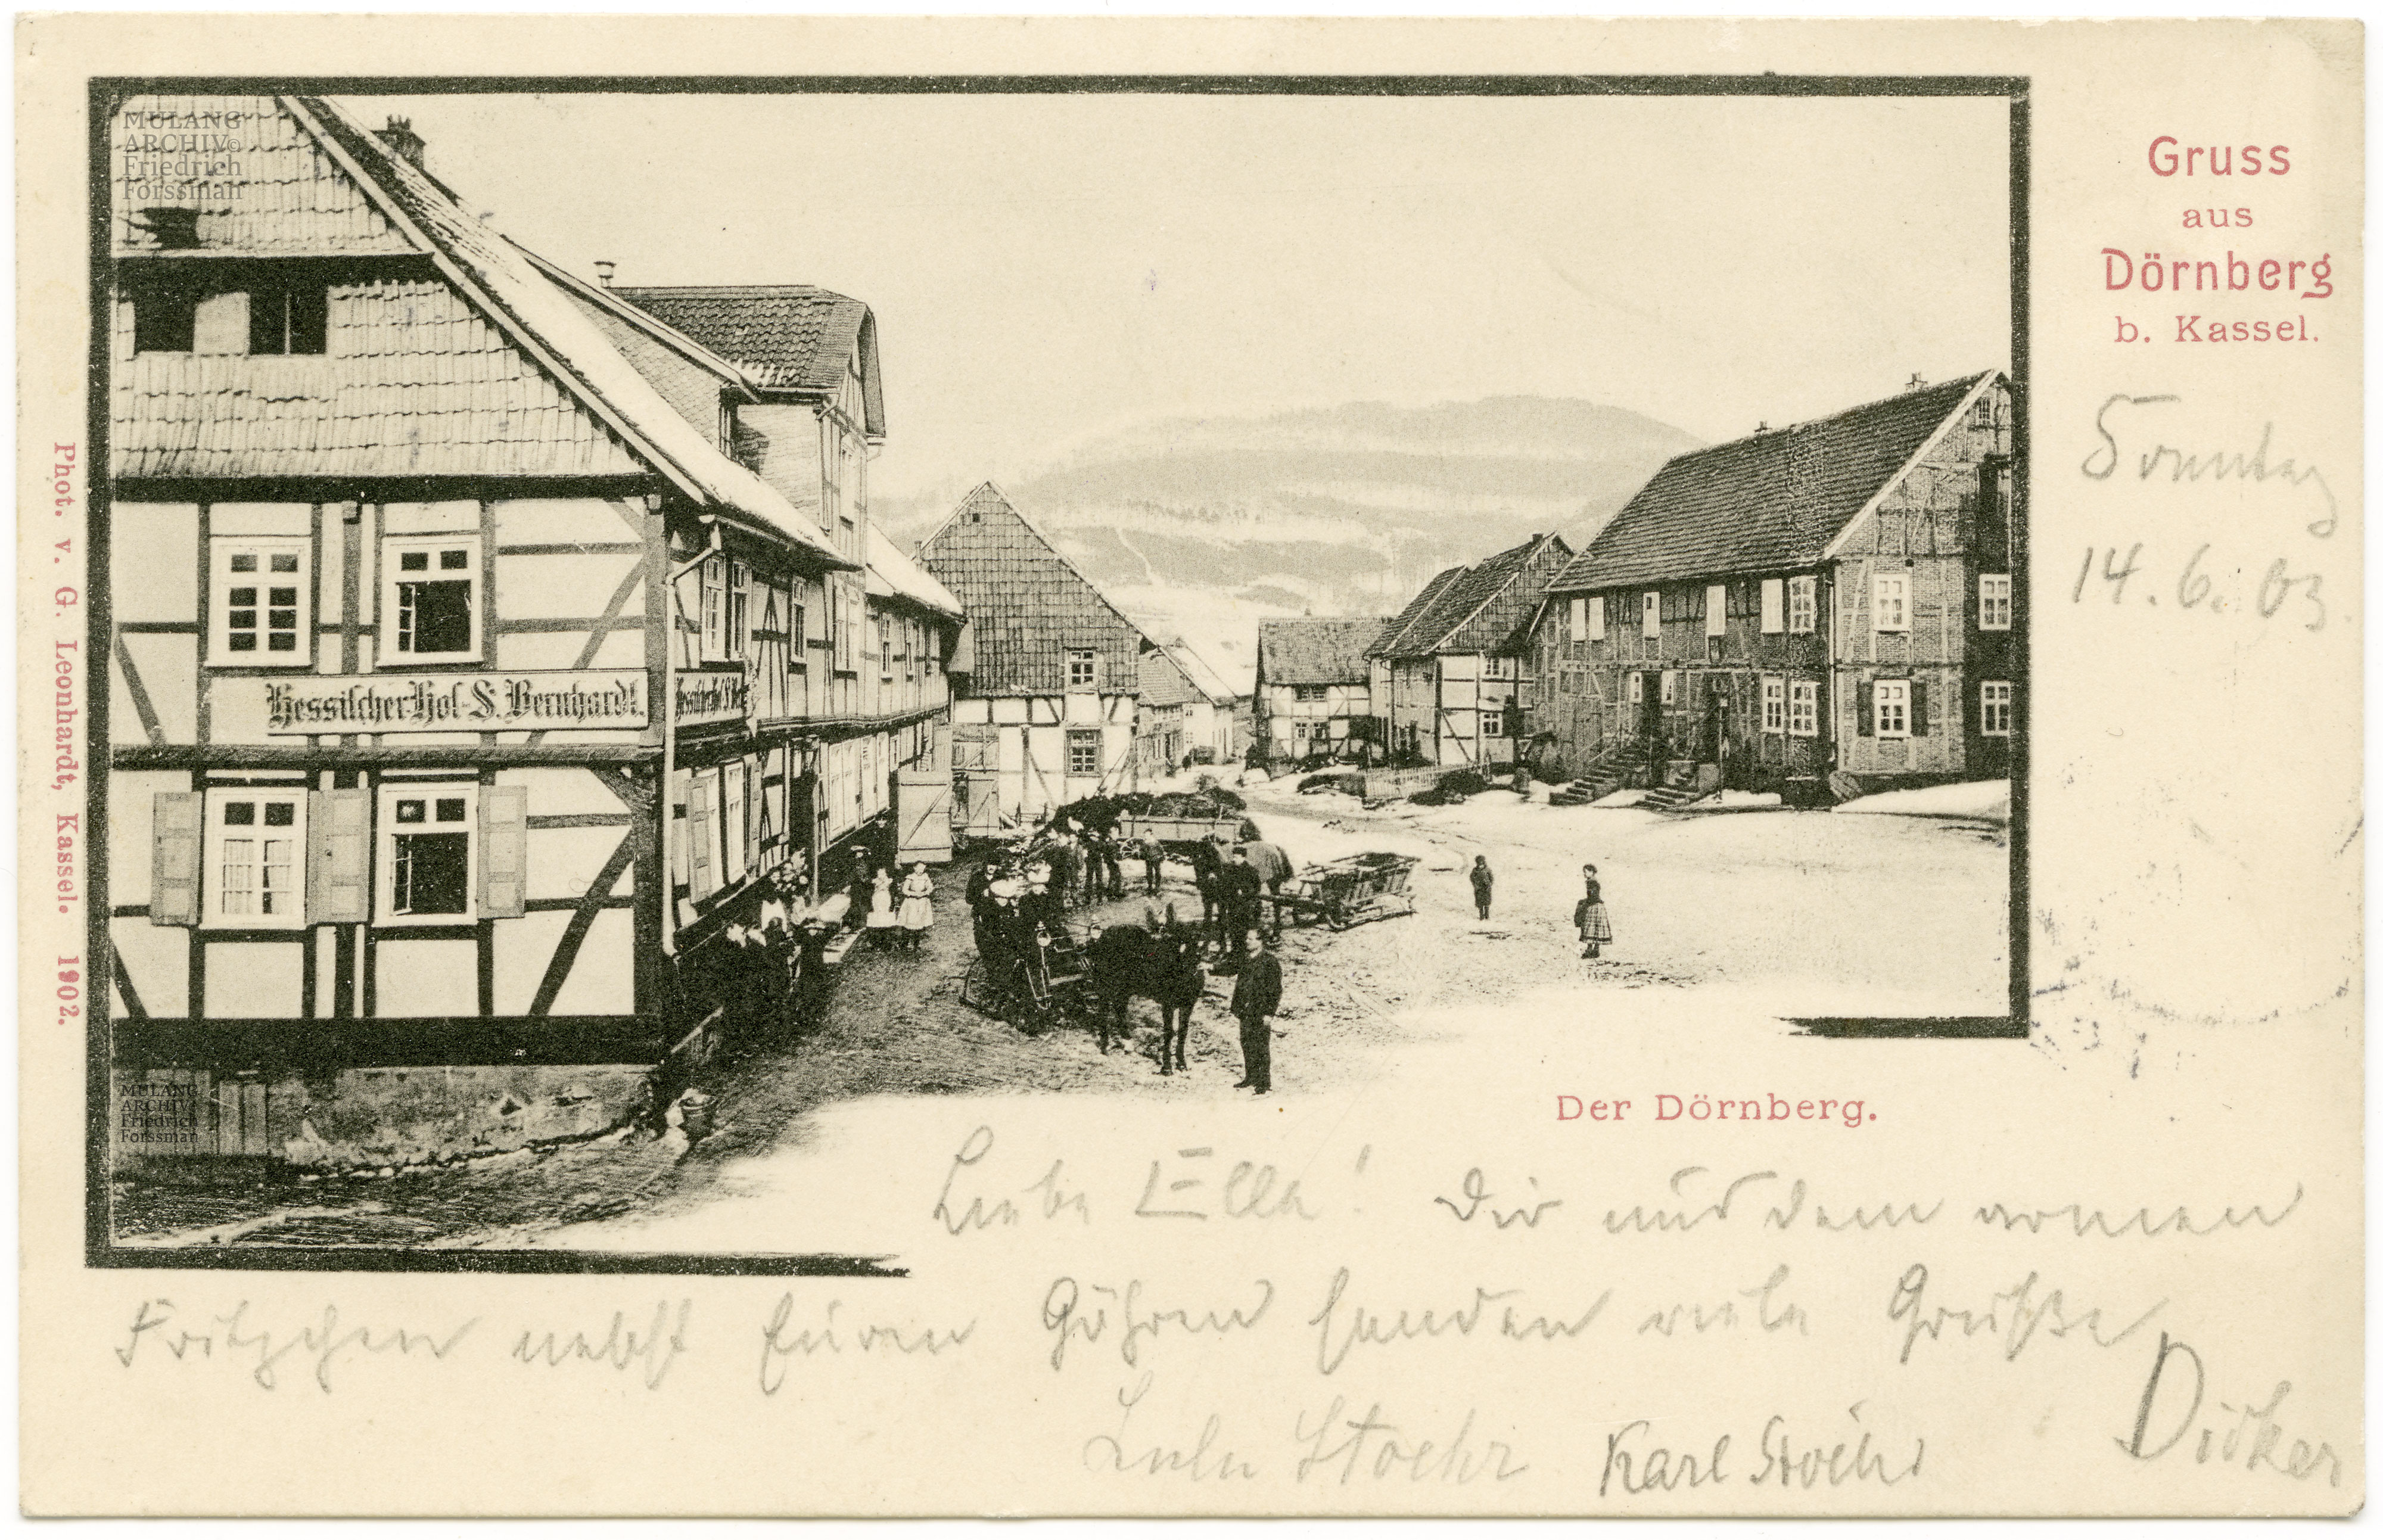 MULANG
ARCHIV©
Friedrich
Forssman
Gruss
aus
Dörnberg
b. Kassel.
Sonntag
14. 6. 03.
Phot. v. G. Leonhardt, Kassel. 1902.
Hessischer Hof S. Bernhardt.
MULANG
ARCHIV©
Friedrich
Forssman
Der Dörnberg.
Liebe Ella! Dir und dem armen
Fritzchen nebst Euren Göhren senden viele Grüße
Lulu Stoehr Karl Stoehr